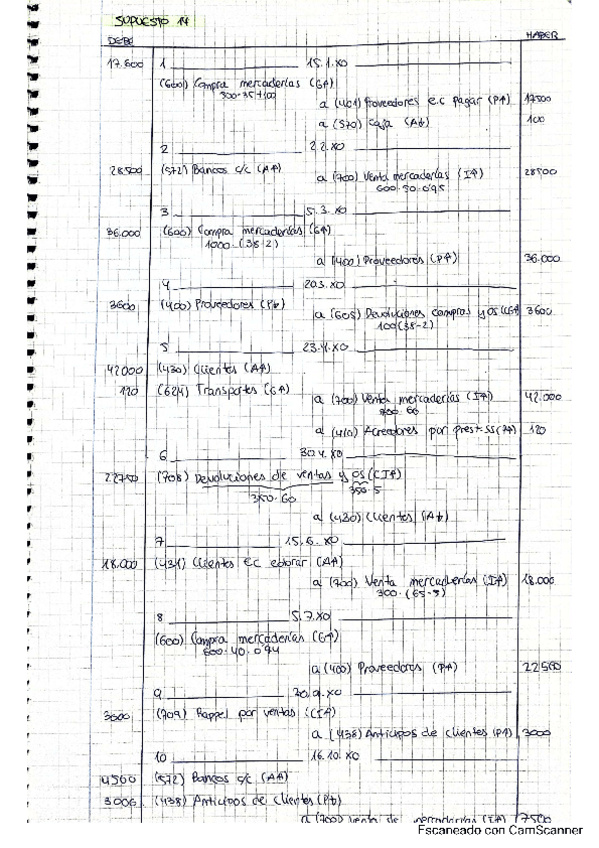 SUPUESTO 14
DEBE HABER
17.600 1 15.1.X0
(600) Compra mercaderías (G↑)
300·35+100
a (401) Proveedores e.c pagar (P↑) 17500
a (570) Caja (A↓) 100
2 2.2.X0
28500 (572) Bancos c/c (A↑)
a (700) Venta mercaderías (I↑) 28500
600·50·0'95
3 5.3.X0
36.000 (600) Compra mercaderías (G↑)
1000·(38-2)
a (400) Proveedores (P↑) 36.000
4 20.3.X0
3600 (400) Proveedores (P↓)
a (608) Devoluciones compras y os 3600
100(38-2)
5 23.4.X0
42000 (430) Clientes (A↑)
120 (624) Transportes (G↑)
a (700) Venta mercaderías (I↑) 42.000
700·60
a (410) Acreedores por prest.SS (P↑) 120
6 30.4.X0
22750 (708) Devoluciones de ventas y os
350·60 350·5
a (430) Clientes (A↓)
7 15.6.X0
18.000 (431) Clientes e.c cobrar (A↑)
a (700) Venta mercaderías (I↑) 18.000
300·(65-5)
8 5.7.X0
(600) Compra mercaderías (G↑)
600·40·0'94
a (400) Proveedores (P↑) 22560
9 20.9.X0
3000 (709) Rappel por ventas
a (438) Anticipos de clientes (P↑) 3000
10 16.10.X0
4500 (572) Bancos c/c (A↑)
3000 (438) Anticipos de clientes (P↓)
a (700) Venta de mercaderías (I↑) 7500
Escaneado con CamScanner